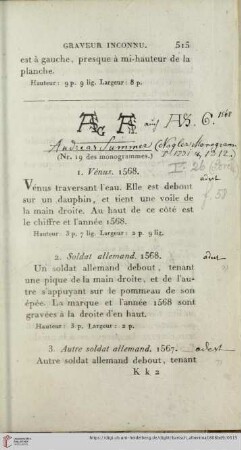 GRAVEUR INCONNU. 515
est à gauche, presque à mi-hauteur de la
planche.
Hauteur: 9 p. 9 lig. Largeur: 8 p.
AS. 6. 1568
Andreas Summer (Nagler Monogram
(Nr. 19 des monogrammes.)
1. Vénus. 1568.
Vénus traversant l'eau. Elle est debout
sur un dauphin, et tient une voile de
la main droite. Au haut de ce côté est
le chiffre et l'année 1568.
Hauteur: 3 p. 7 lig. Largeur: 2 p. 9 lig.
2. Soldat allemand. 1568.
Un soldat allemand debout, tenant
une pique de la main droite, et de l'au-
tre s'appuyant sur le pommeau de son
épée. La marque et l'année 1568 sont
gravées à la droite d'en haut.
Hauteur: 3 p. Largeur: 2 p.
3. Autre soldat allemand. 1567.
Autre soldat allemand debout, tenant
K k 2